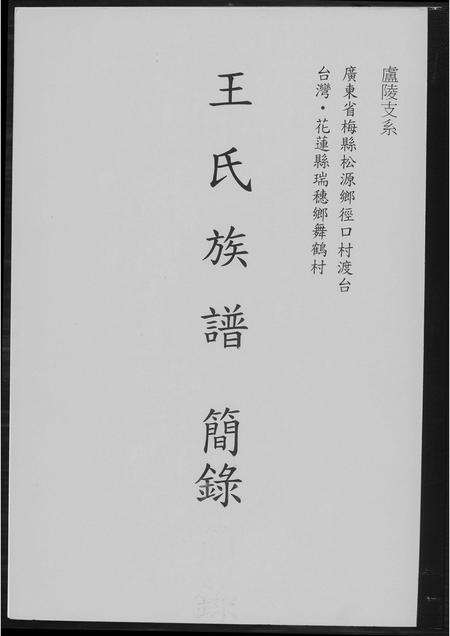 盧陵支系
廣東省梅縣松源鄉徑口村渡台
台灣・花蓮縣瑞穗鄉舞鶴村
王氏族譜 簡錄